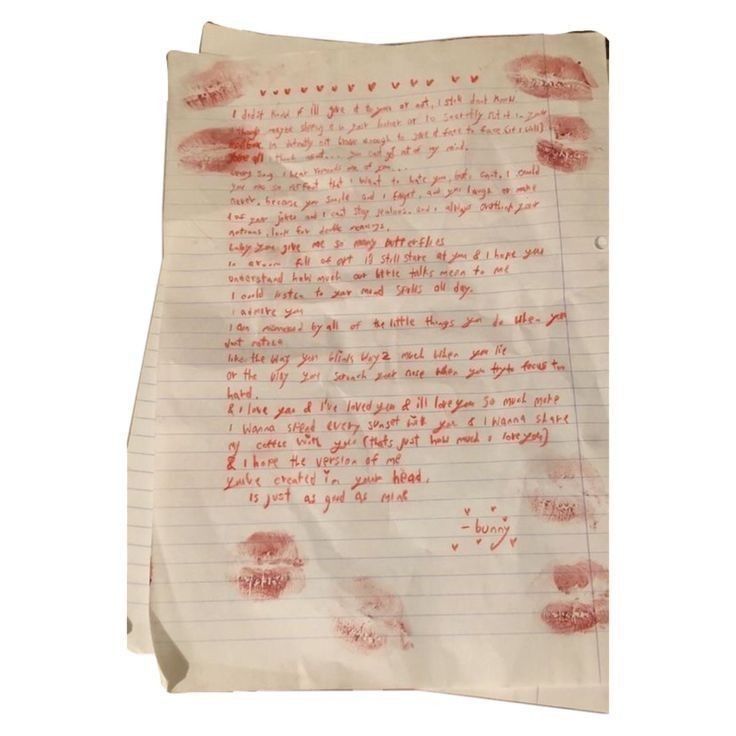 I didnt know if ill give it to you or not, I still dont know.
I though maybe slipping it in your locker or to secretly put it in your
mailbox, im definitly not brave enough to give it face to face (ot I will)
your all I think about... you cant get out of my mind.
every song I hear reminds me of you...
your just so perfect that I want to hate you, but i cant, I could
never, because you smile and i forget, and you laugh or make
1 of your jokes and I cant stay jealous. and i always overthink your
notions, look for double meanings.
baby you give me so many butterflies
in a room full of art i'd still stare at you & I hope you
understand how much our little talks mean to me
I could listen to your mood spills all day.
i admire you
I am mesmerized by all of the little things you do when you
dont notice
like the way you blink way 2 much when you lie
or the way you scrunch your nose when you try to focus too
hard.
& i love you & I've loved you & ill love you so much more
I wanna spend every sunset with you & I wanna share
my coffee with you (thats just how much i love you)
& I hope the version of me
you've created in your head.
is just as good as mine
- bunny